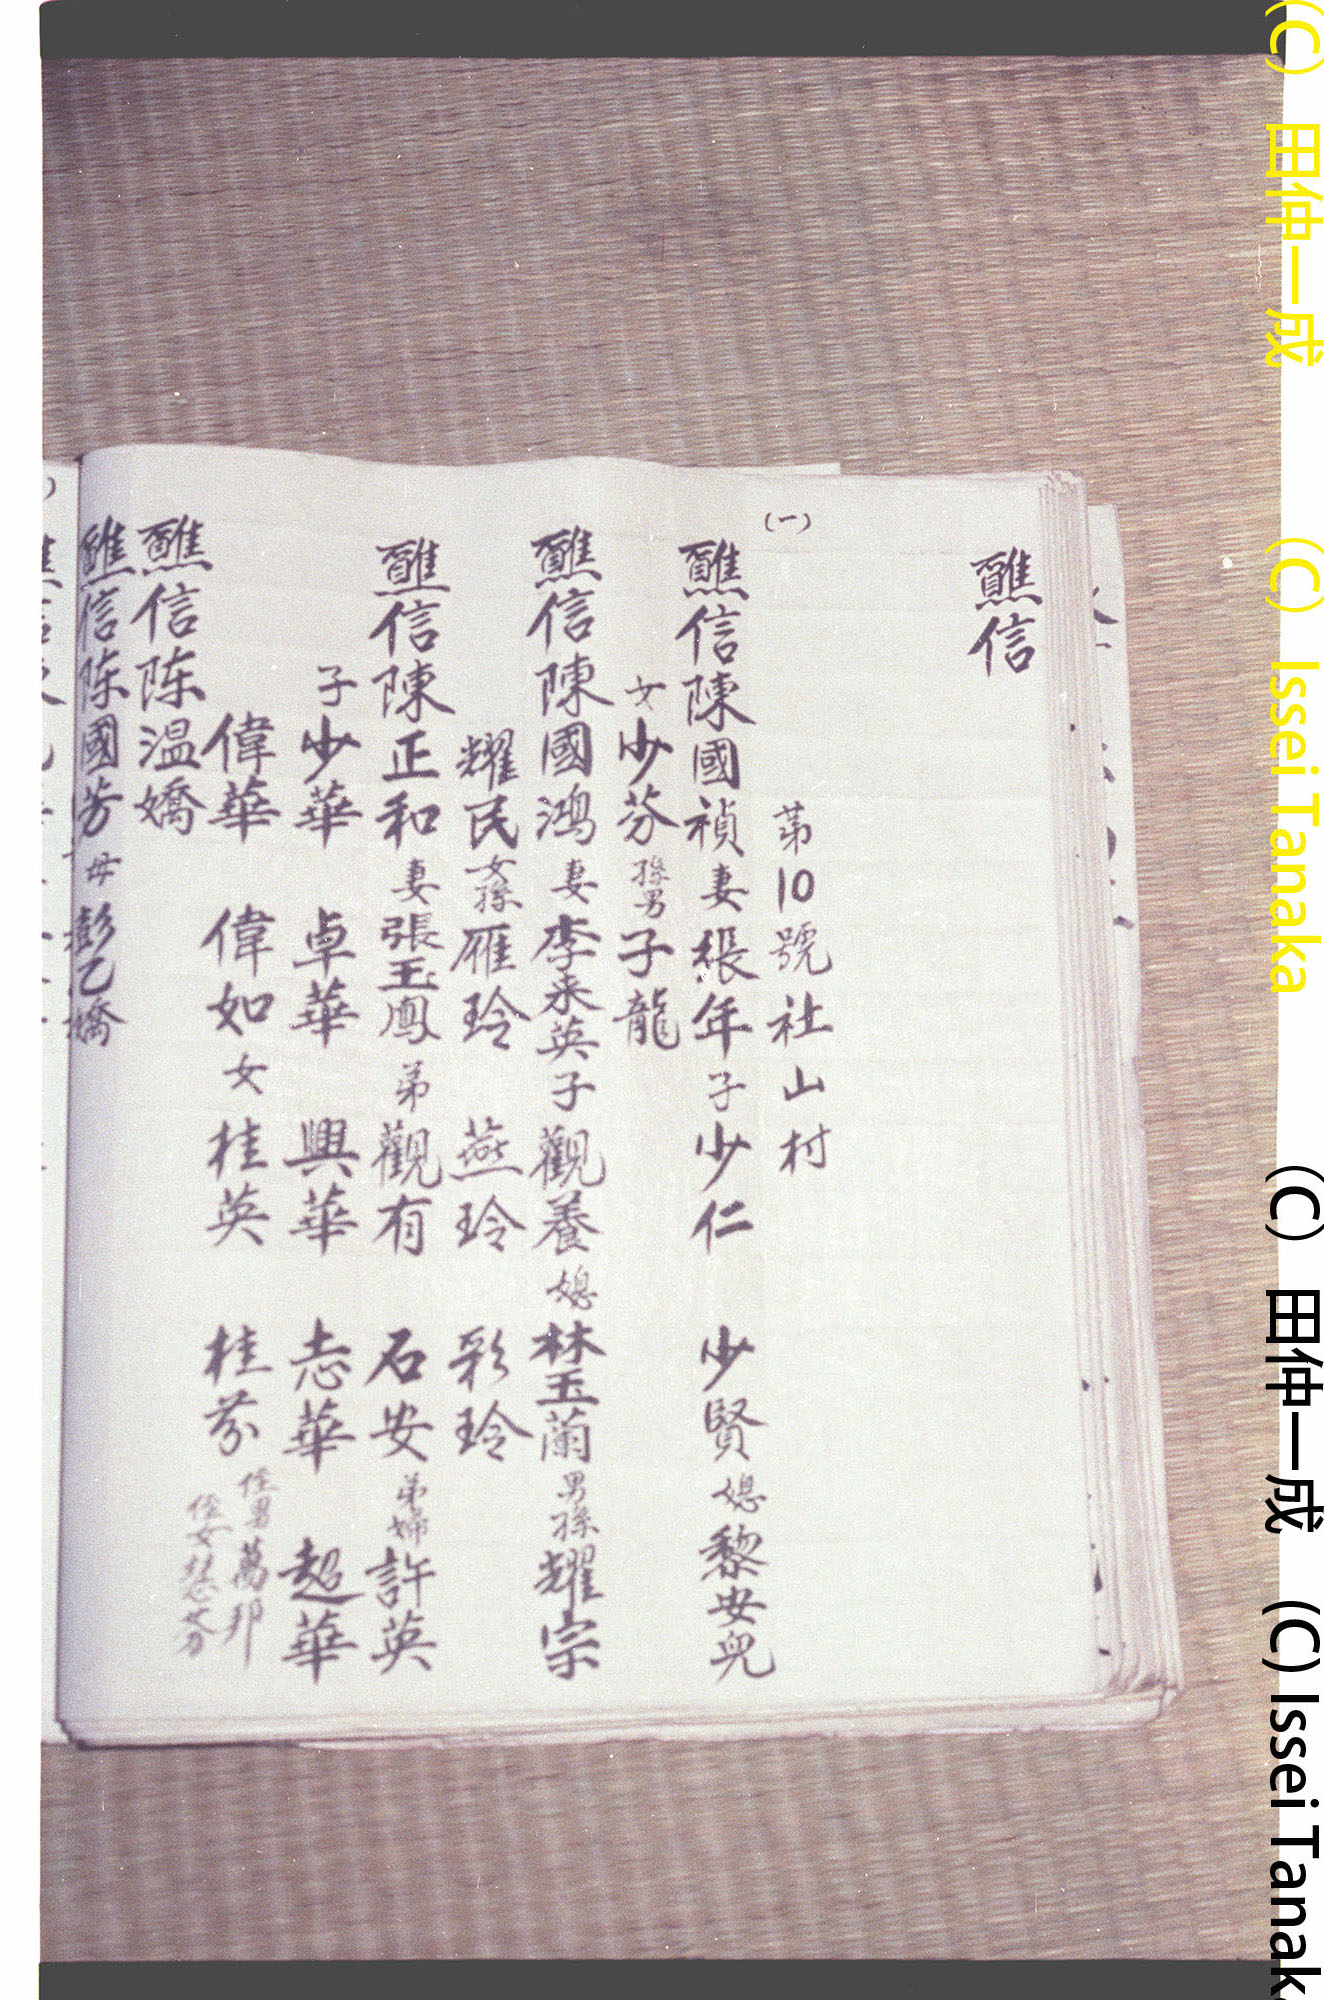 醮信
(一)
第10號社山村
醮信陳國禎妻張年子少仁 少賢媳黎安兒
女少芬孫男子龍
醮信陳國鴻妻李来英子觀養媳林玉蘭男孫耀宗
耀民女孫雁玲 燕玲 彩玲
醮信陳正和妻張玉鳳弟觀有 石安弟婦許英
子少華 卓華 興華 志華 超華
偉華 偉如女桂英 桂芬侄男萬邦
侄女慧芬
醮信陈温嬌
醮信陈國芳母彭乙嬌
(C) 田仲一成 (C) Issei Tanaka
(C) 田仲一成 (C) Issei Tanaka